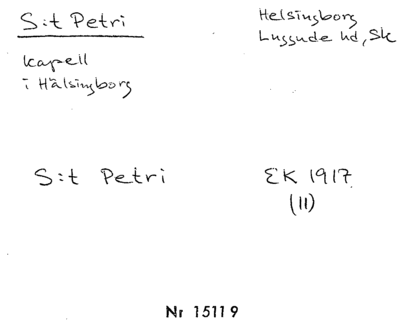 S:t Petri
kapell
i Hälsingborg
Helsingborg
Luggude hd, Sk
S:t Petri
EK 1917
(11)
Nr 15119